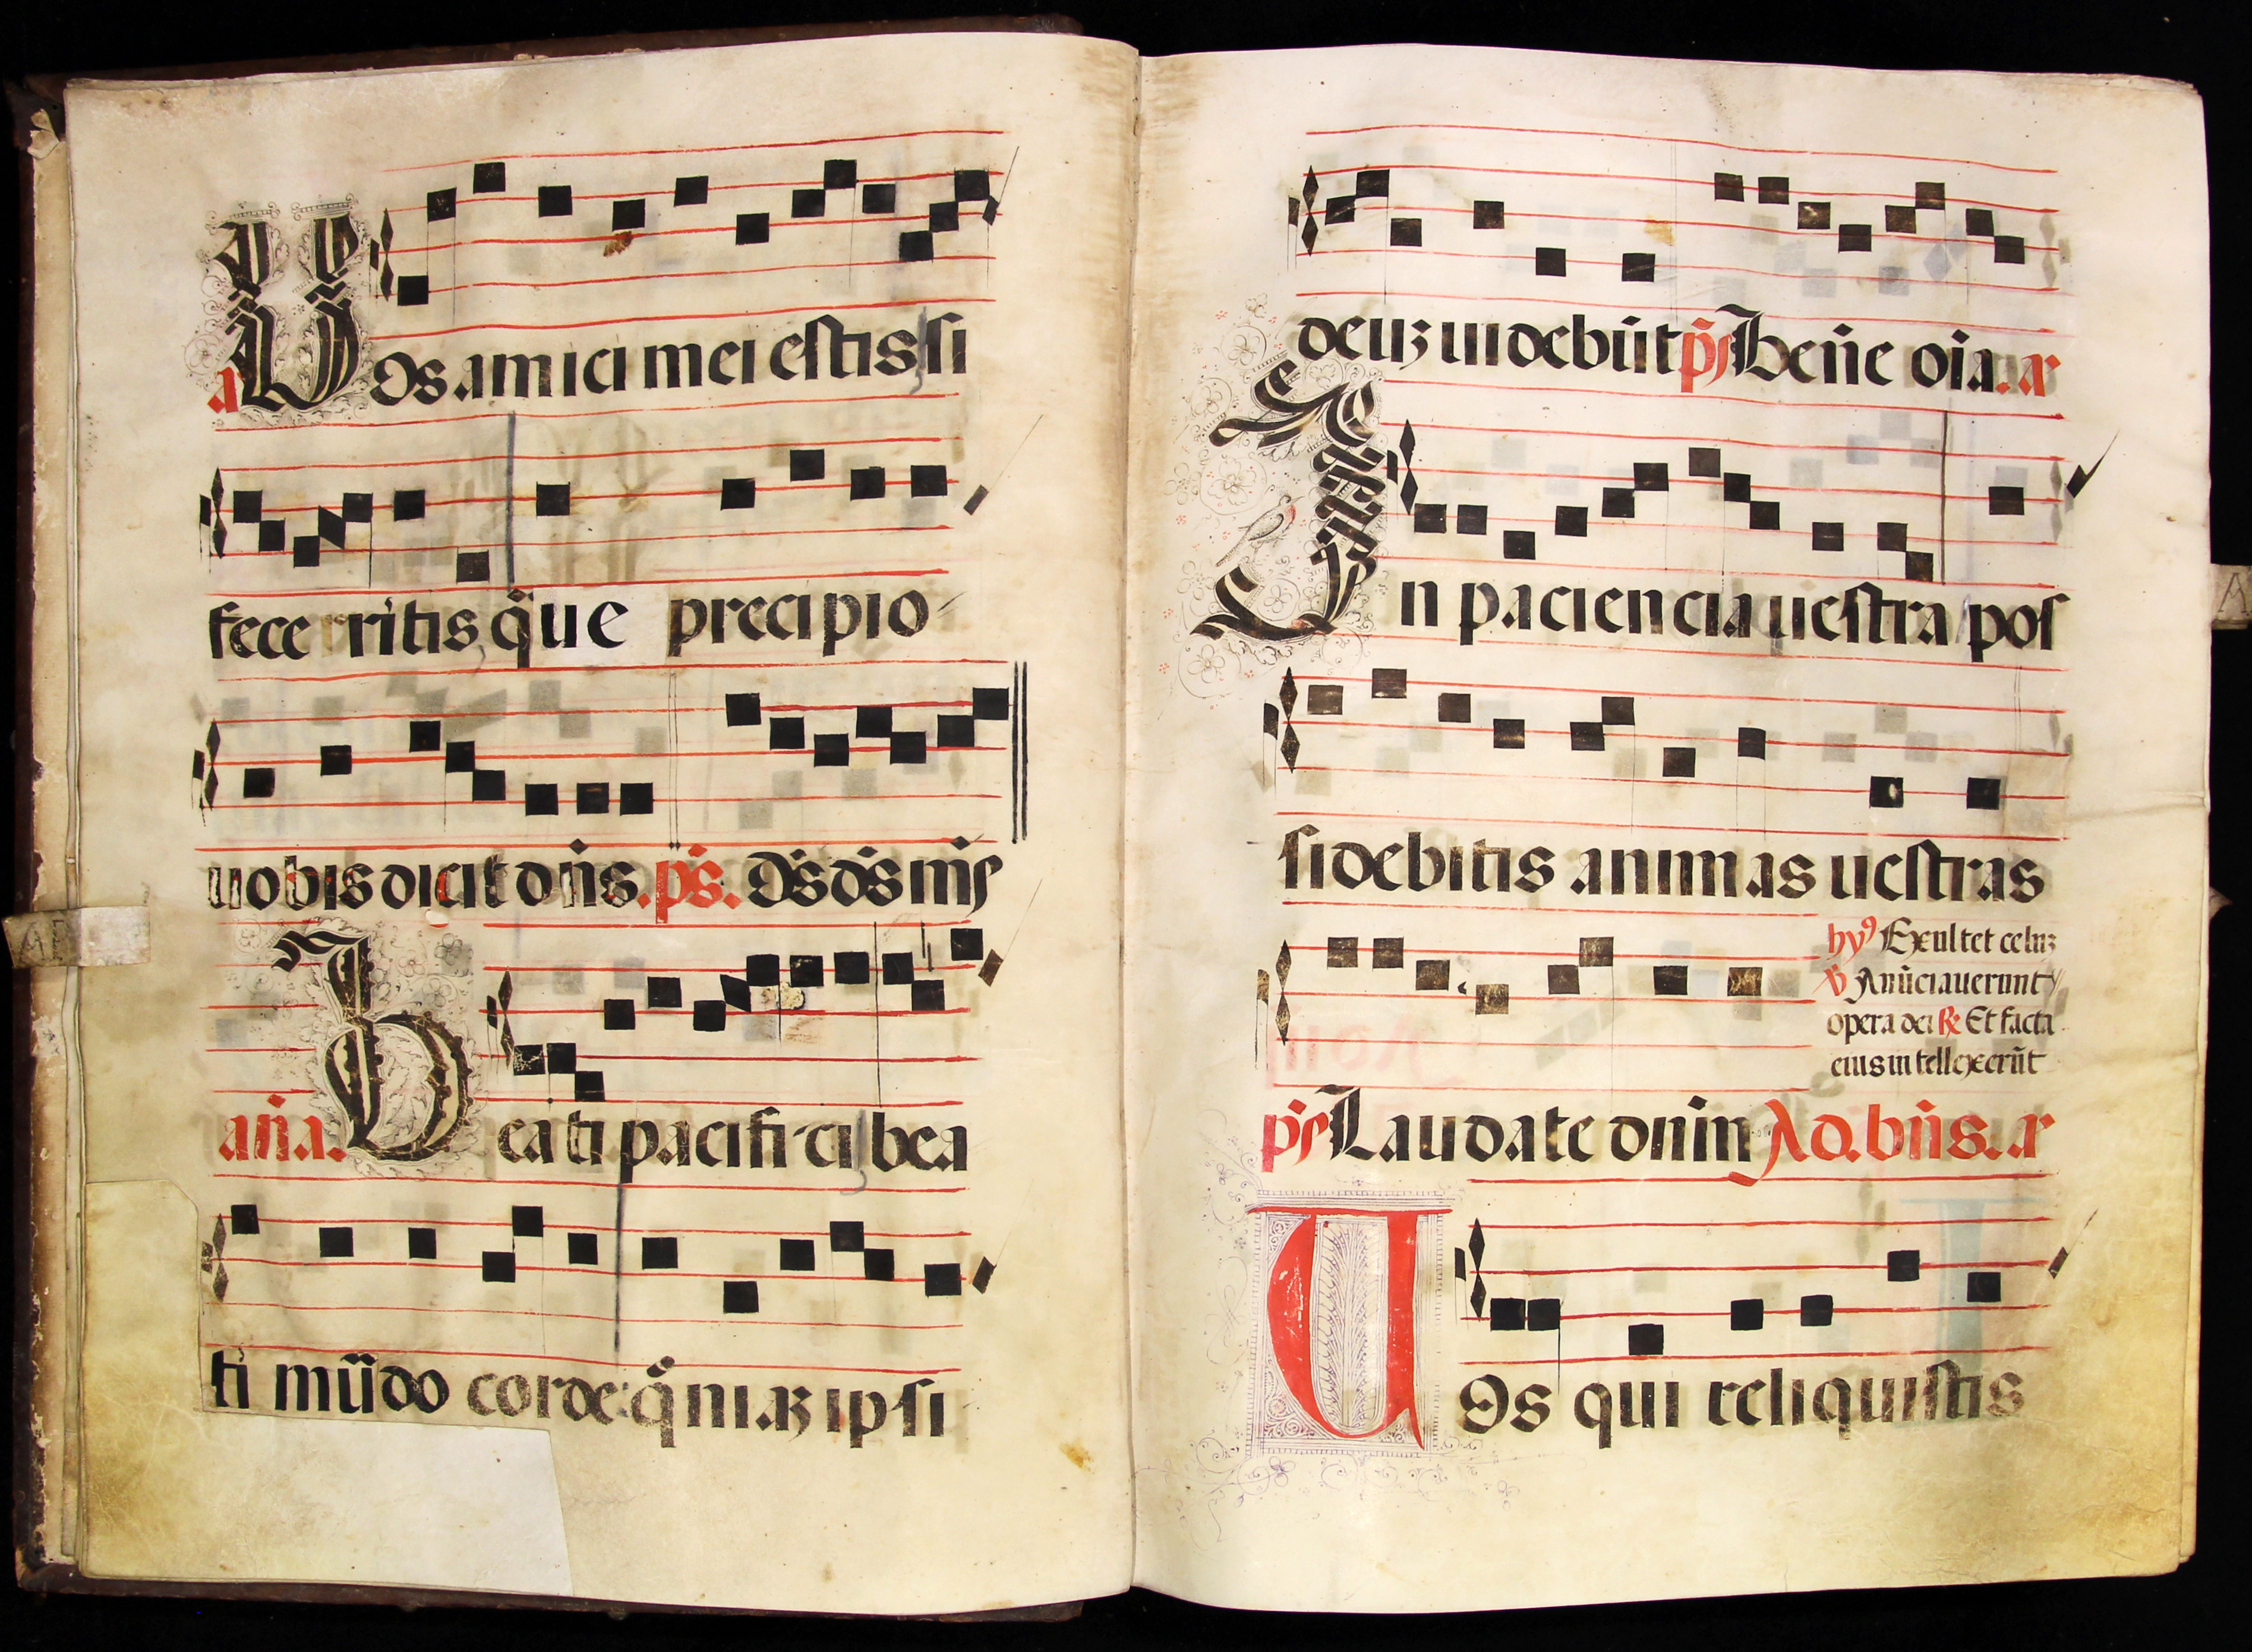 a Vos amici mei estis si
fece rritis q̃ue precipio
uobis dicit dñs. ps̃. Ds̃ ds̃ mŝ
añа. Beati pacifici bea
ti mũdo corde: q̃niaʒ ipsi
deuʒ uidebũt ps̃ Beñe oĩa. a
In paciencia uestra pos
sidebitis animas uestras
hy⁹ Exultet celuʒ
v̉ Anũciauerunt
opera dei ℟ Et facta
eius intellexerũt
ps̃ Laudate dnm̃ Ad. bñs. a
Uos qui reliquistis